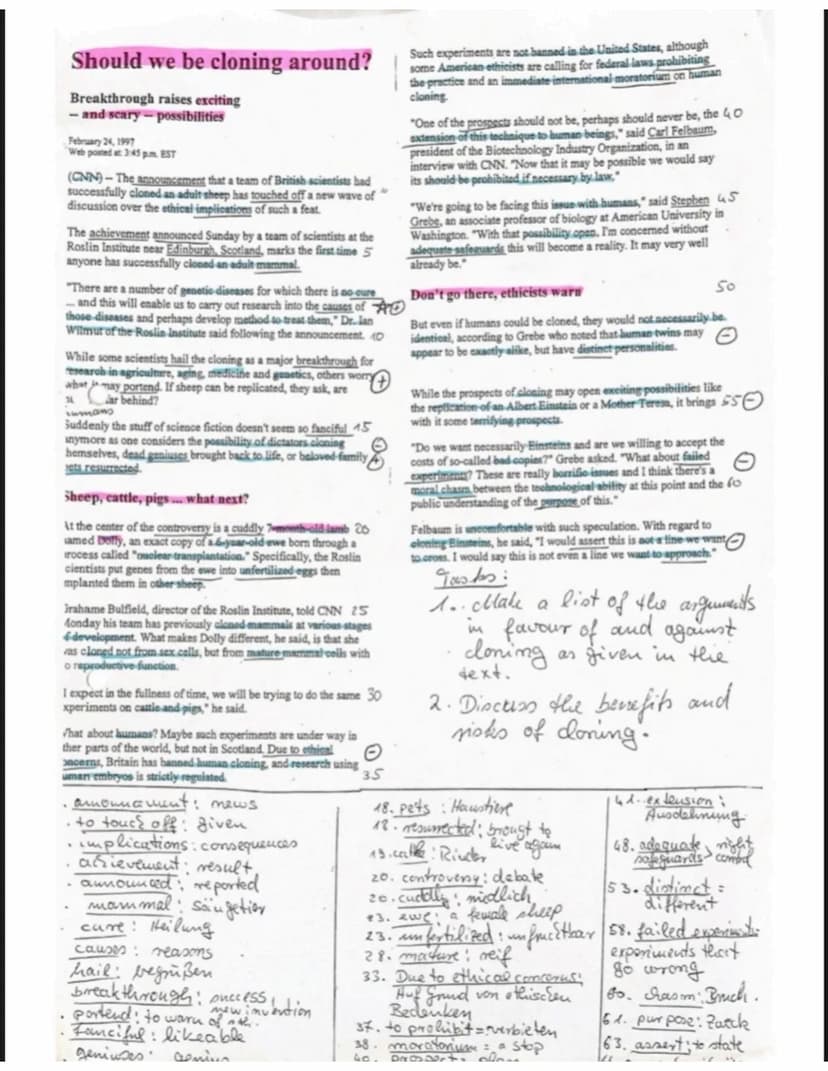 Should we be cloning around?
Breakthrough raises exciting
– and scary – possibilities
February 24, 1997
Web posted at: 3:45 p.m. EST
(CNN) – The announcement that a team of British scientists had
successfully cloned an adult sheep has touched off a new wave of
discussion over the ethical implications of such a feat.
The achievement announced Sunday by a team of scientists at the
Roslin Institute near Edinburgh, Scotland, marks the first time 5
anyone has successfully cloned an adult mammal.
"There are a number of genetic diseases for which there is no cure
... and this will enable us to carry out research into the causes of
those diseases and perhaps develop method to treat them," Dr. Ian
Wilmut of the Roslin Institute said following the announcement. 10
While some scientists hail the cloning as a major breakthrough for
research in agriculture, aging, medicine and genetics, others worry
what it may portend. If sheep can be replicated, they ask, are
ar behind?
humans
Suddenly the stuff of science fiction doesn't seem so fanciful 15
anymore as one considers the possibility of dictators cloning
hemselves, dead geniuses brought back to life, or beloved family
ets resurrected.
Sheep, cattle, pigs ... what next?
At the center of the controversy is a cuddly 7-month-old lamb 20
amed Dolly, an exact copy of a 6-year-old ewe born through a
rocess called "nuclear transplantation." Specifically, the Roslin
cientists put genes from the ewe into unfertilized eggs then
mplanted them in other sheep.
Grahame Bulfield, director of the Roslin Institute, told CNN 25
Monday his team has previously cloned mammals at various stages
f development. What makes Dolly different, he said, is that she
vas cloned not from sex cells, but from mature mammal cells with
o reproductive function.
I expect in the fullness of time, we will be trying to do the same 30
xperiments on cattle and pigs," he said.
What about humans? Maybe such experiments are under way in
ther parts of the world, but not in Scotland. Due to ethical
oncerns, Britain has banned human cloning, and research using
uman embryos is strictly regulated. 35
Such experiments are not banned in the United States, although
some American ethicists are calling for federal laws prohibiting
the practice and an immediate international moratorium on human
cloning.
"One of the prospects should not be, perhaps should never be, the 40
extension of this technique to human beings," said Carl Felbaum,
president of the Biotechnology Industry Organization, in an
interview with CNN. "Now that it may be possible we would say
its should be prohibited if necessary by law."
"We're going to be facing this issue with humans," said Stephen 45
Grebe, an associate professor of biology at American University in
Washington. "With that possibility open, I'm concerned without
adequate safeguards this will become a reality. It may very well
already be."
50
Don't go there, ethicists warn
But even if humans could be cloned, they would not necessarily be
identical, according to Grebe who noted that human twins may
appear to be exactly alike, but have distinct personalities.
While the prospects of cloning may open exciting possibilities like
the replication of an Albert Einstein or a Mother Teresa, it brings 55
with it some terrifying prospects.
"Do we want necessarily Einsteins and are we willing to accept the
costs of so-called bad copies?" Grebe asked. "What about failed
experiments? These are really horrific issues and I think there's a
moral chasm between the technological ability at this point and the 60
public understanding of the purpose of this."
Felbaum is uncomfortable with such speculation. With regard to
cloning Einsteins, he said, "I would assert this is not a line we want
to cross. I would say this is not even a line we want to approach."
Tasks:
1. Make a list of the arguments
in favour of and against
cloning as given in the
text.
2. Discuss the benefits and
risks of cloning.
announcement: news
to touch off: given
implications: consequences
achievement: result
announced: reported
mammal: Säugetier
cure: Heilung
causes: reasons
hail: begrüßen
breakthrough: success,
new invention
portend: to warn of sth.
fanciful: likeable
geniuses: genius
18. pets: Haustiere
18. resurrected: brought to
live again
19. cattle: Rinder
20. controversy: debate
20. cuddly: niedlich
23. ewe: a female sheep
23. unfertilized: unfruchtbar
28. mature: reif
33. Due to ethical concerns:
Auf Grund von ethischen
Bedenken
37. to prohibit = verbieten
38. moratorium = a stop
41. extension:
Ausdehnung
48. adequate right
safeguards control
53. distinct =
different
58. failed experiments:
experiments that
go wrong
60. chasm: Bruch.
61. purpose: Zweck
63. assert: to state